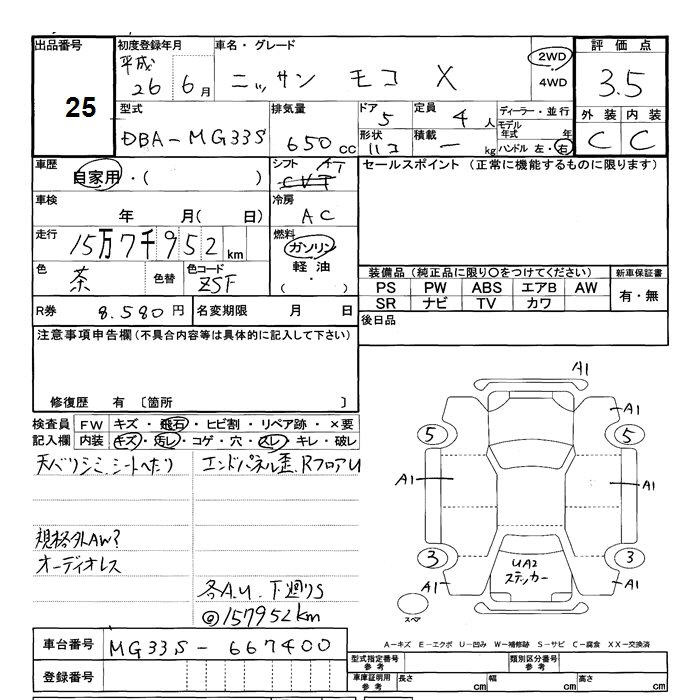 出品番号 初度登録年月 車名・グレード 評価点
25 平成 26 6月 ニッサン モコ X 2WD 4WD 3.5
型式 排気量 ドア 定員 ディーラー・並行 外装 内装
DBA-MG33S 650cc 5 4人 モデル年式 年 C C
形状 ハコ 積載 ー kg ハンドル 左・右
車歴 自家用・( ) シフト AT CVT セールスポイント (正常に機能するものに限ります)
車検 年 月( 日) 冷房 AC
走行 15万7千952km 燃料 ガソリン
軽油
( ・ )
色 茶 色替 色コード ZSF
装備品(純正品に限り○をつけてください) 新車保証書
PS PW ABS エアB AW 有・無
SR ナビ TV カワ
R券 8.580円 名変期限 月 日 後日品
注意事項申告欄(不具合内容等は具体的に記入して下さい)
修復歴 有 〔箇所 〕
検査員 FW キズ・飛石・ヒビ割・リペア跡・×要
記入欄 内装 キズ・汚レ・コゲ・穴・スレ・キレ・破レ
天ベリシミ.シートへたり エンドパネル歪.RフロアU
規格外AW?
オーディオレス
各A.U.下廻りS
◎157952km
A1
A1
5 5
A1 A1
3 3
UA2
ステッカー
A1 A1
スペア
A-キズ E-エクボ U-凹み W-補修跡 S-サビ C-腐食 XX-交換済
車台番号 MG33S-667400
型式指定番号 参考 類別区分番号 参考
登録番号 車庫証明用 参考 長さ cm 幅 cm 高さ cm